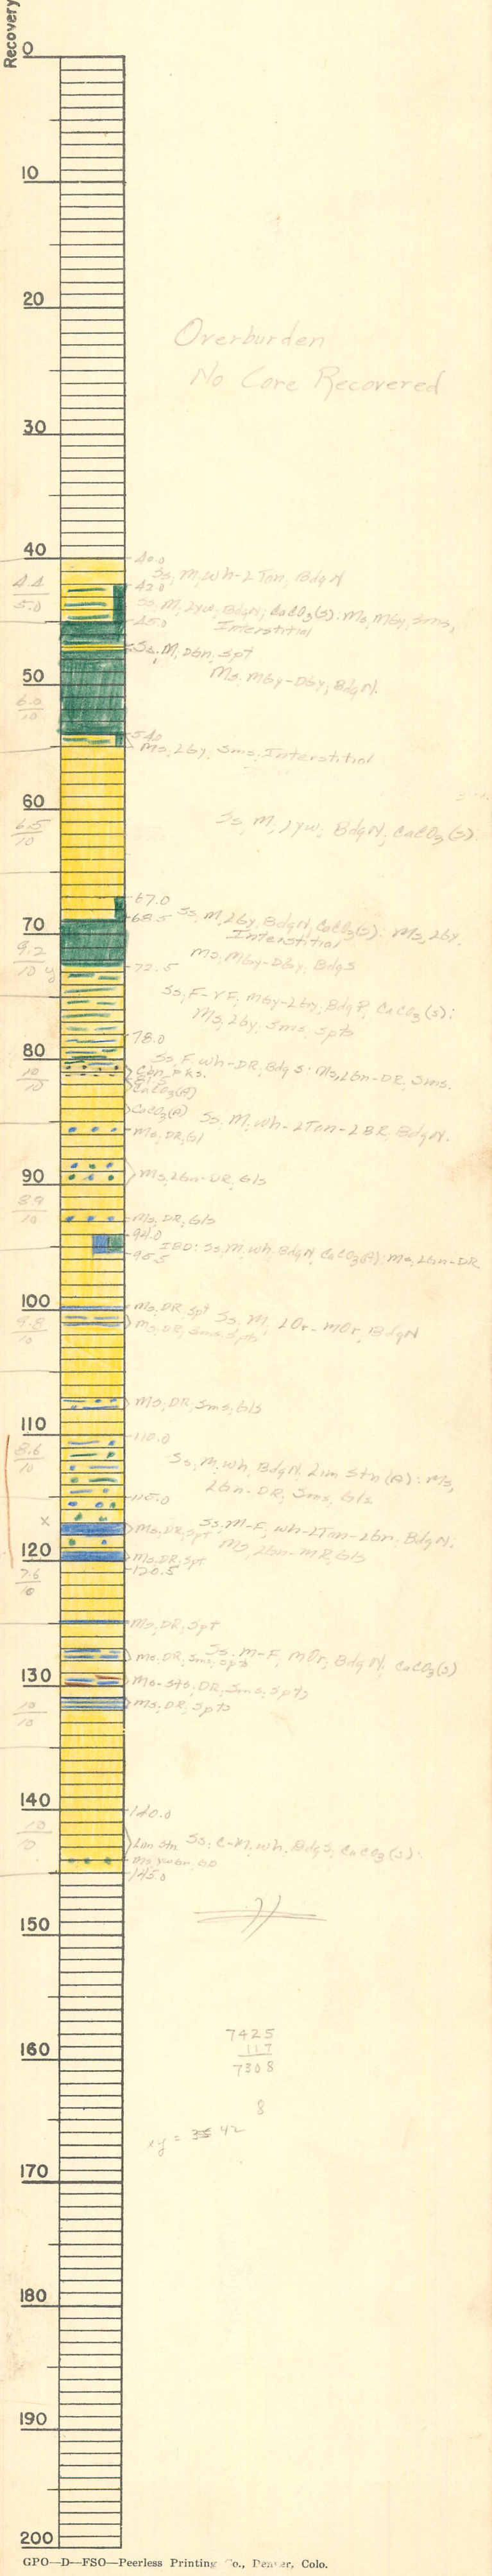 Recovery
0
10
20
Overburden
No Core Recovered
30
40
40.0
Ss, M, Wh-LTan, BdgN
4.4
5.0
42.0
Ss, M, Lyw, BdgN, CaCO3(s): Ms, MGy, Sms,
45.0
Interstitial
Ss, M, Dbn, Spt
Ms, MGy-DGy, BdgN.
50
6.0
10
54.0
Ms, LGy, Sms, Interstitial
60
Ss, M, Lyw, BdgN, CaCO3(s).
6.5
10
67.0
68.5
Ss, M, LGy, BdgN, CaCO3(s): Ms, LGy,
Interstitial
70
Ms, MGy-DGy, BdgS
9.2
10
72.5
Ss, F-VF, MGy-LGy, BdgP, CaCO3(s):
Ms, LGy, Sms, Spts
78.0
80
Ss, F, Wh-DR, BdgS: Ms, Lbn-DR, Sms.
Cbn, Pks.
81.5
10
10
CaCO3(A)
CaCO3(A)
Ss, M, Wh-LTan-LBR, BdgN.
Ms, DR, Gl
Ms, Lbn-DR, Gls
90
8.9
10
Ms, DR, Gls
94.0
IBD: Ss, M, Wh, BdgN, CaCO3(A): Ms, Lbn-DR
95.5
100
Ms, DR, Spt
Ss, M, LOr-MOr, BdgN
Ms, DR, Sms, Spts
9.8
10
Ms, DR, Sms, Gls
110
110.0
8.6
10
Ss, M, Wh, BdgN, Lim Stn (A): Ms,
Lbn-DR, Sms, Gls
115.0
x
Ss, M-F, Wh-LTan-Lbn, BdgN;
Ms, DR, Spt
Ms, Lbn-MR, Gls
120
Ms, DR, Spt
120.5
7.6
10
Ms, DR, Spt
Ss, M-F, MOr, BdgN, CaCO3(s)
Ms, DR, Sms, Spts
130
Ms-Sts, DR, Sms, Spts
Ms, DR, Spts
10
10
140
140.0
10
10
Lim Stn
Ss, C-M, Wh, BdgS, CaCO3(s).
145.0
150
7425
117
7308
160
8
xy = 42
170
180
190
200
GPO—D—FSO—Peerless Printing Co., Denver, Colo.